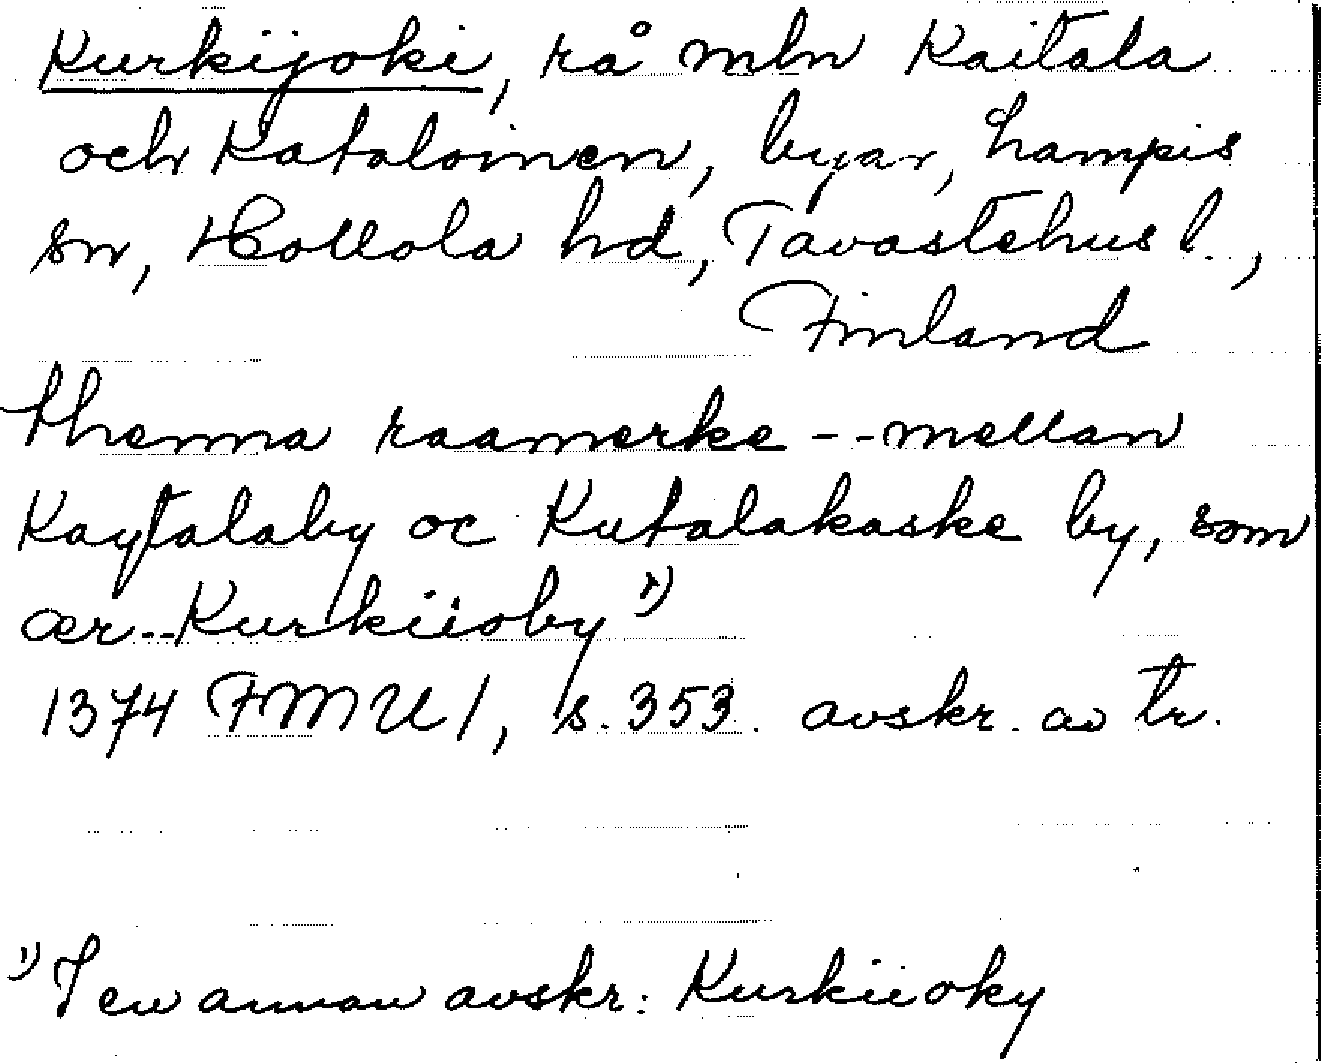 Kurkijoki, rå mln Kaitala
och Kataloinen, byar, Lampis
sn, Hollola hd, Tavastehus l.,
Finland
thenna raamerke -- mellan
Kaytalaby oc Kutalakaske by, som
ær -- Kurkiioby 1)
1374 FMU 1, s. 353. avskr. av tr.
1) I en annan avskr.: Kurkiioky